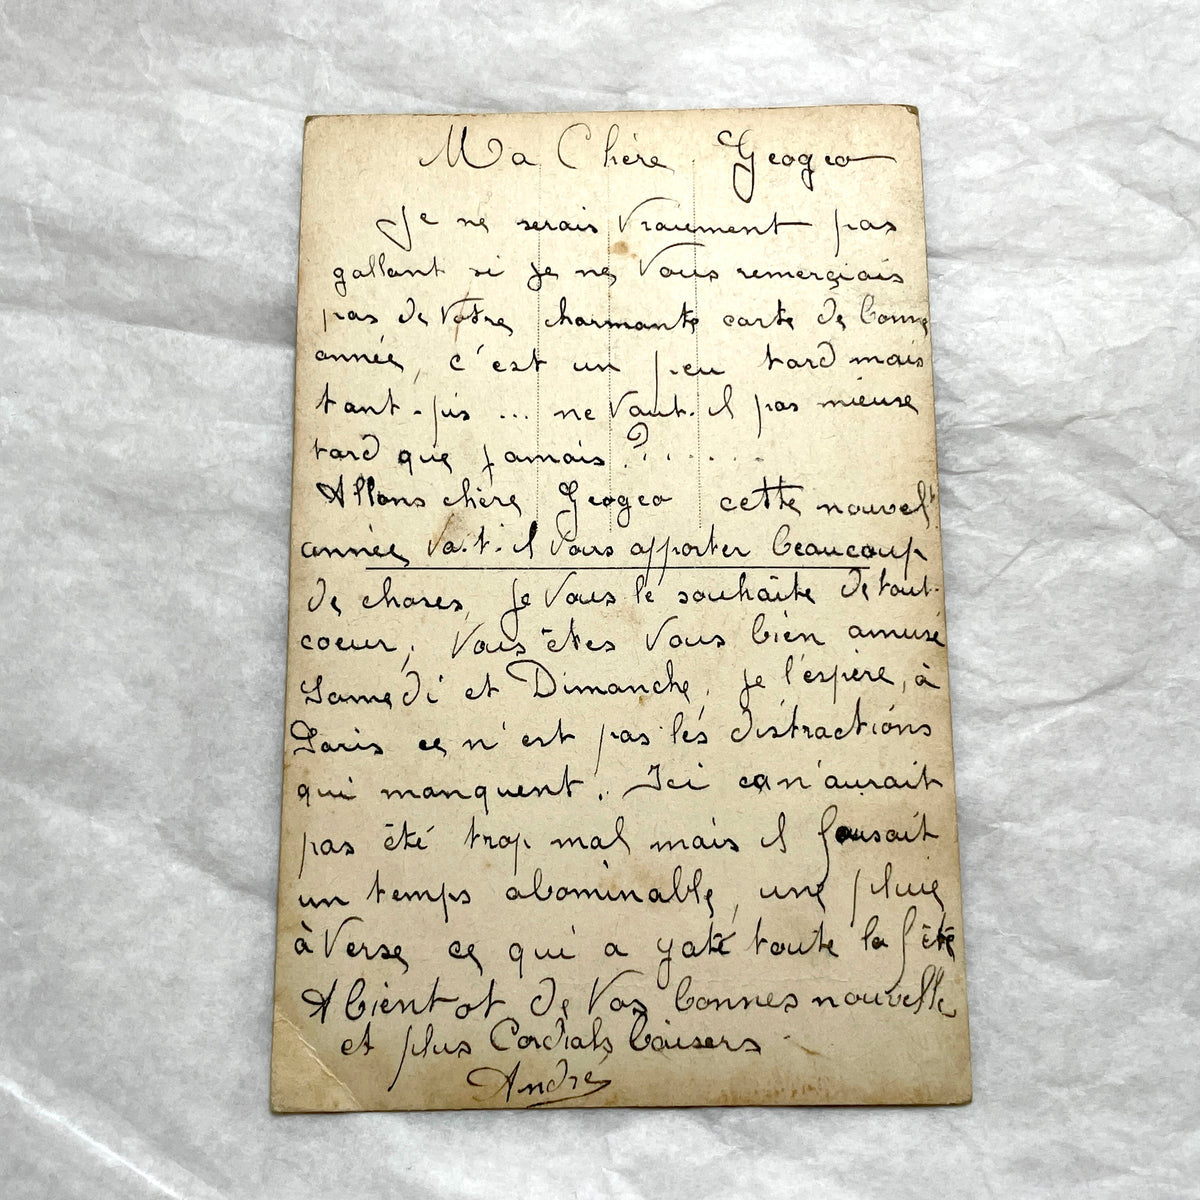 Ma Chère Geogeo
Je ne serais vraiment pas
gallant si je ne vous remerçiais
pas de votre charmante carte de bonne
année, c'est un peu tard mais
tant-pis ... ne vaut-il pas mieuse
tard que jamais ? . . . . . .
Allons chère Geogeo cette nouvell
année va-t-il vous apporter beaucoup
de choses, je vous le souhaite de tout-
coeur, vous êtes vous bien amusé
Samedi et Dimanche, je l'espère, à
Paris ce n'est pas les distractions
qui manquent. Ici ca n'aurait
pas été trop mal mais il faisait
un temps abominable, une pluie
à verse ce qui a gaté toute la fête
A bientot de vos bonnes nouvelle
et plus Cordials baisers
André